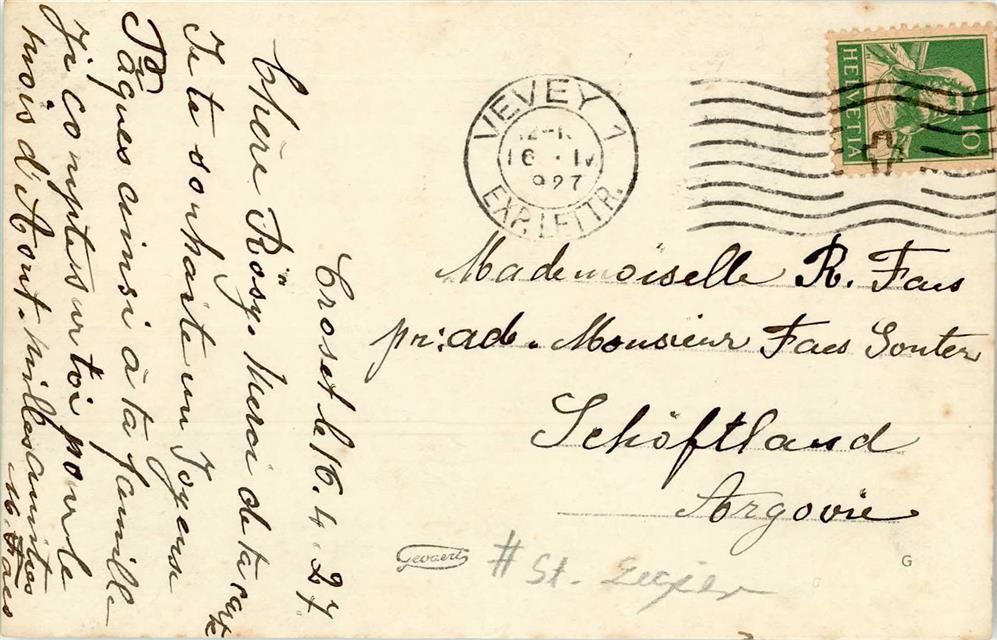 Croset le 16. 4. 27.
Chère Rösy. Merci de ta carte
Je te souhaite un Joyeux
Pâques ainsi à ta famille
J'i compte sur toi pour le
mois d'Aout. milles amitiés
M. Faes
VEVEY 1
16 · IV
927
EXP. LETTR.
HELVETIA
10
Mademoiselle R. Faes
pr: ad. Monsieur Faes Gonter
Schöftland
Argovie
Gevaert
# St. Legier
G